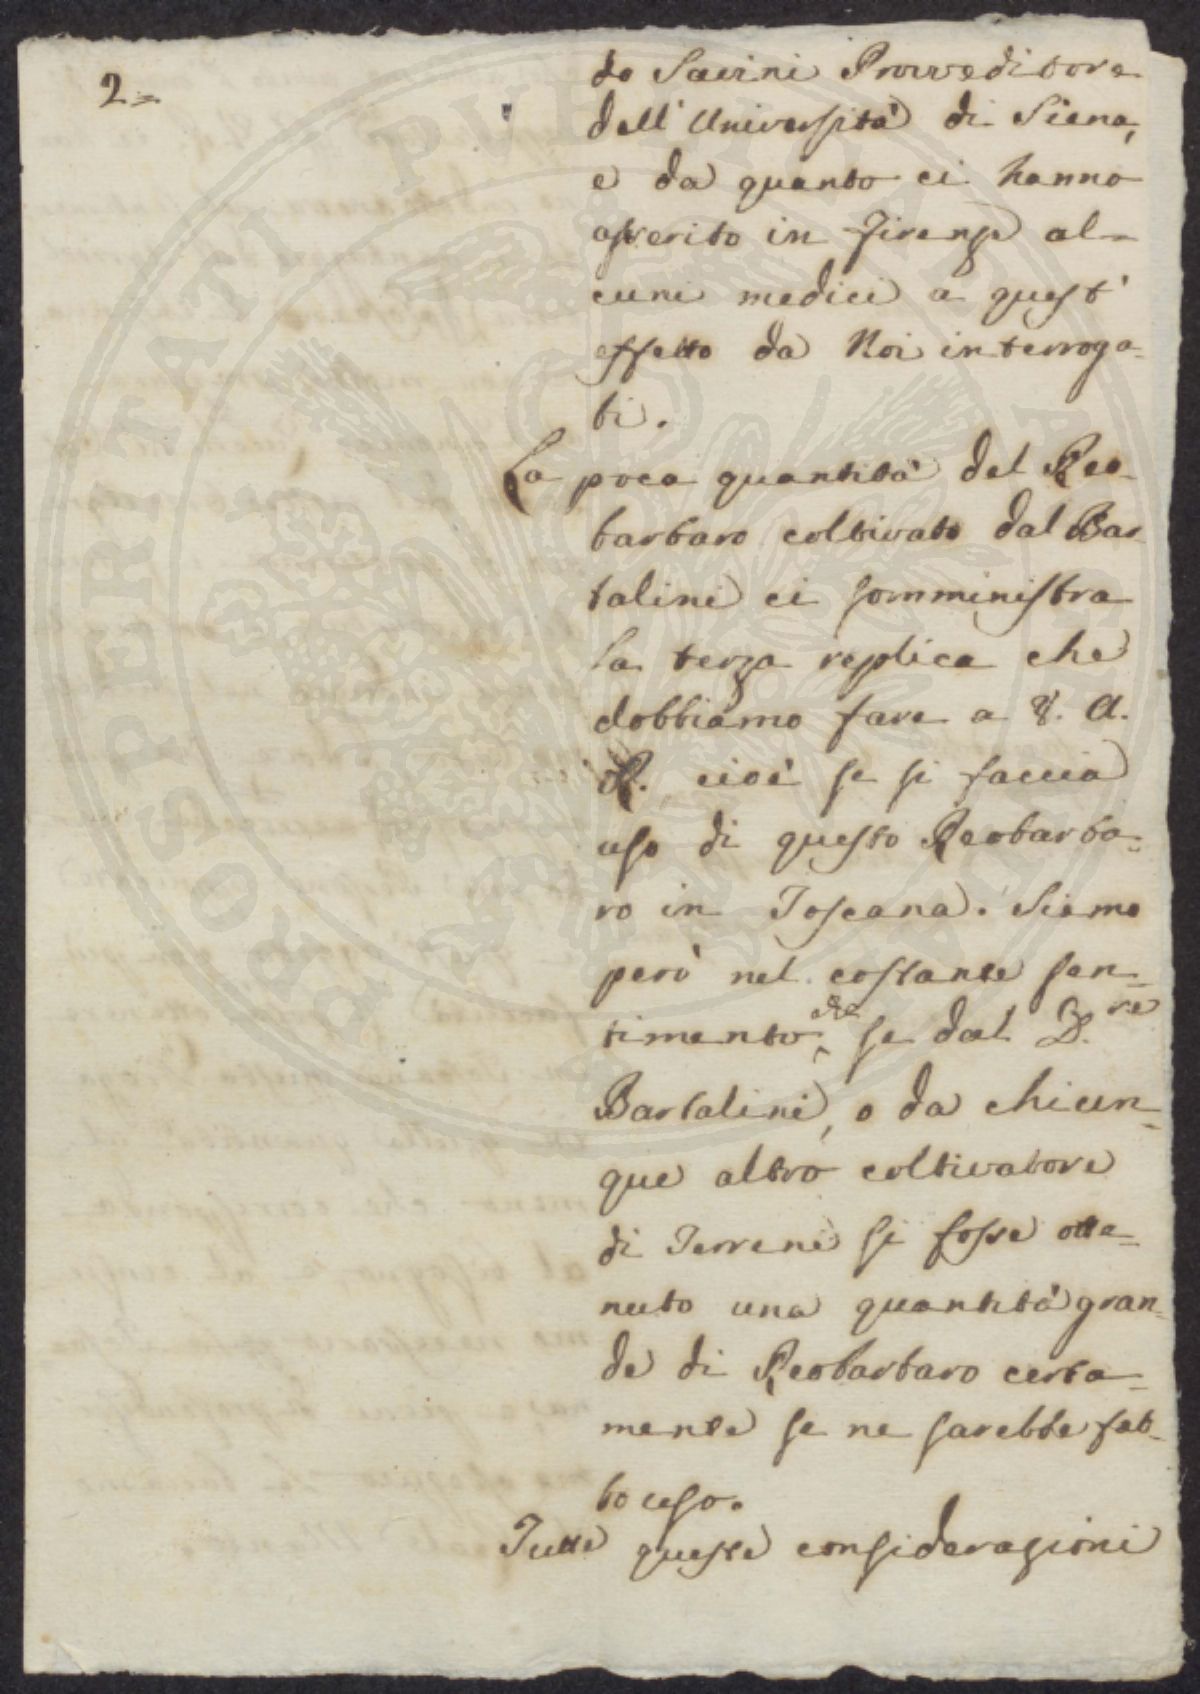 2=
do Savini Provveditore
dell' Università di Siena,
e da quanto ci hanno
asserito in Firenze al=
cuni medici a quest'
effetto da Noi interroga=
ti.
La poca quantità del Reo=
barbaro coltivato dal Bar
talini ci somministra
la terza replica che
dobbiamo fare a V. A.
R. cioè se si faccia
uso di questo Reobarba=
ro in Toscana. Siamo
però nel costante sen=
timento, che se dal D.re
Bartalini, o da chiun=
que altro coltivatore
di Terreni si fosse otte=
nuto una quantità gran=
de di Reobarbaro certa=
mente se ne sarebbe fat=
to uso.
Tutte queste considerazioni
PROSPERITATI PVBLICAE AVGENDAE